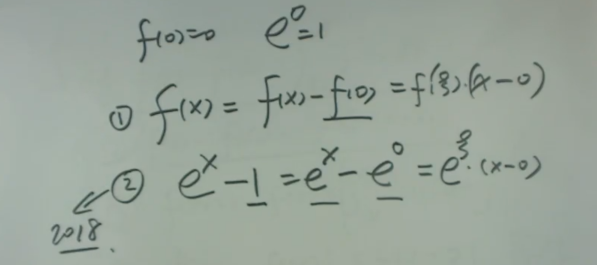 f(0)=0 e⁰=1
① f(x) = f(x)-f(0) = f(ξ)·(x-0)
② eˣ-1 = eˣ-e⁰ = e^ξ·(x-0)
2018.